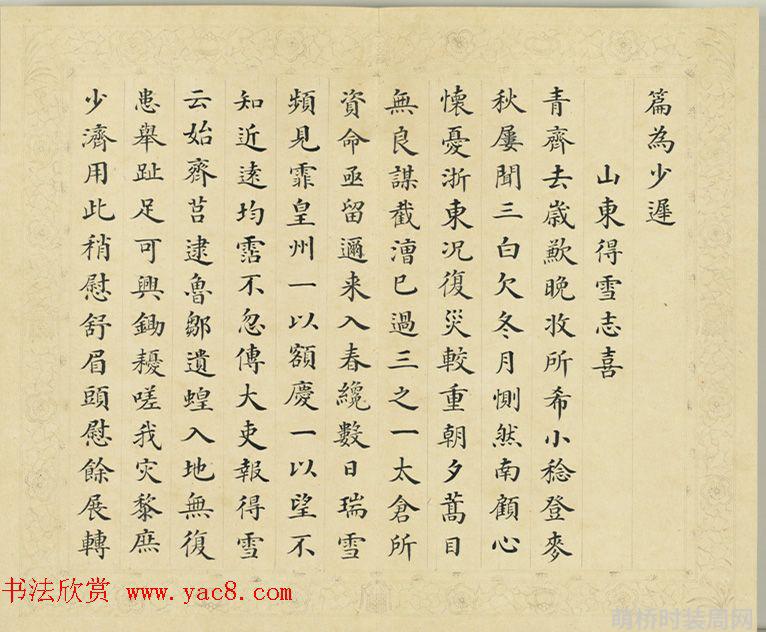 篇為少遲
山東得雪志喜
青齊去歲歉晚收所希小稔登麥
秋屢聞三白欠冬月惻然南顧心
懷憂浙東况復災較重朝夕蒿目
無良謀截漕已過三之一太倉所
資命亟留邇来入春纔數日瑞雪
頻見霏皇州一以額慶一以望不
知近遠均霑不忽傳大吏報得雪
云始齊莒逮魯鄒遺蝗入地無復
患舉趾足可興鋤耰嗟我灾黎庶
少濟用此稍慰舒眉頭慰餘展轉
书法欣赏 www.yac8.com
萌桥时装周网